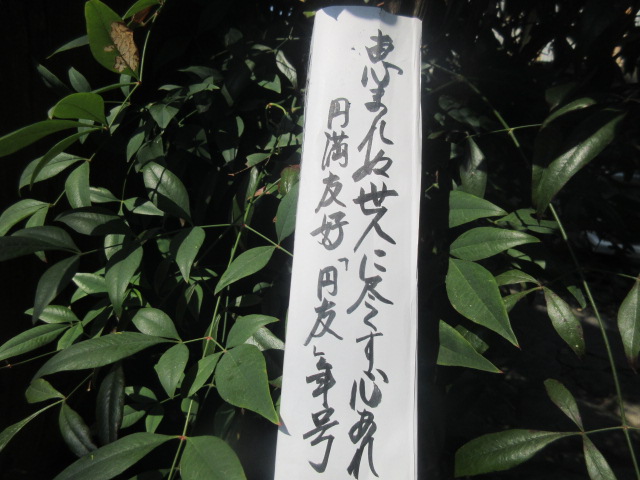 恵まれぬ世人に尽くす心あれ
円満友好「円友」年号